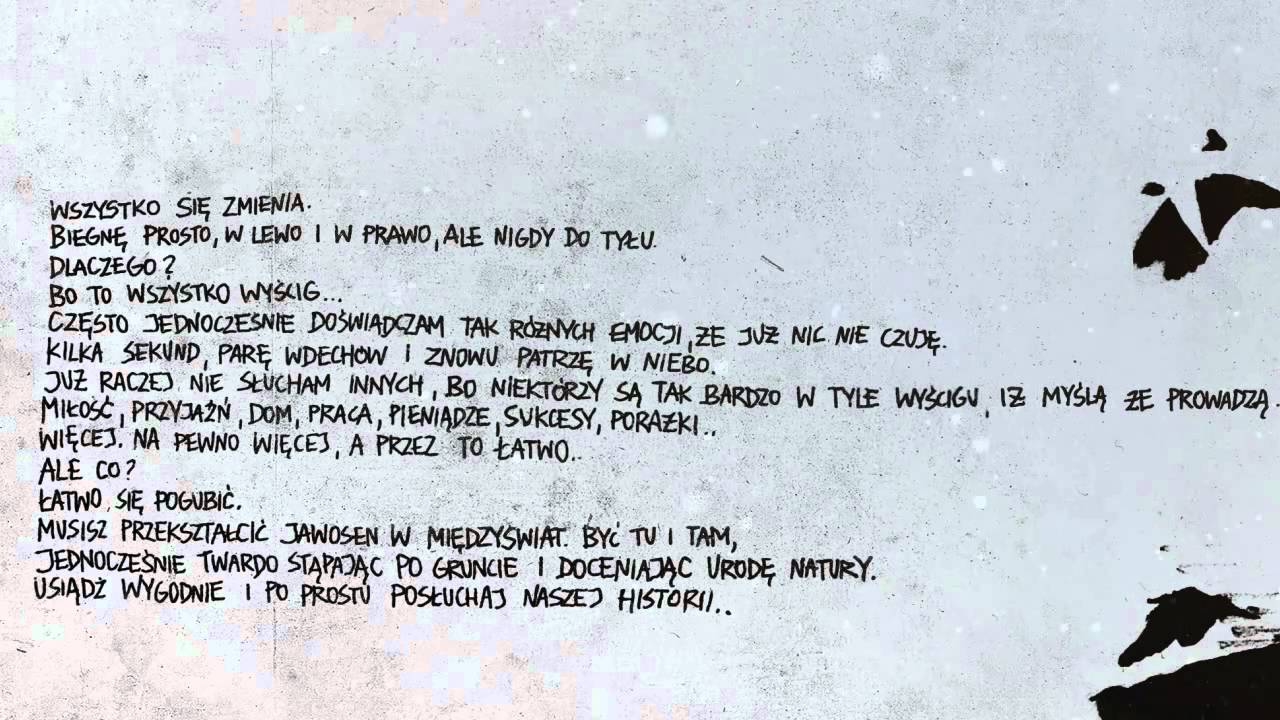 WSZYSTKO SIĘ ZMIENIA.
BIEGNĘ PROSTO, W LEWO I W PRAWO, ALE NIGDY DO TYŁU.
DLACZEGO?
BO TO WSZYSTKO WYŚCIG...
CZĘSTO JEDNOCZEŚNIE DOŚWIADCZAM TAK RÓŻNYCH EMOCJI, ŻE JUŻ NIC NIE CZUJĘ.
KILKA SEKUND, PARĘ WDECHÓW I ZNOWU PATRZĘ W NIEBO.
JUŻ RACZEJ NIE SŁUCHAM INNYCH, BO NIEKTÓRZY SĄ TAK BARDZO W TYLE WYŚCIGU, IŻ MYŚLĄ ŻE PROWADZĄ.
MIŁOŚĆ, PRZYJAŹŃ, DOM, PRACA, PIENIĄDZE, SUKCESY, PORAŻKI..
WIĘCEJ. NA PEWNO WIĘCEJ, A PRZEZ TO ŁATWO..
ALE CO?
ŁATWO SIĘ POGUBIĆ.
MUSISZ PRZEKSZTAŁCIĆ JAWOSEN W MIĘDZYŚWIAT. BYĆ TU I TAM,
JEDNOCZEŚNIE TWARDO STĄPAJĄC PO GRUNCIE I DOCENIAJĄC URODĘ NATURY.
USIĄDŹ WYGODNIE I PO PROSTU POSŁUCHAJ NASZEJ HISTORII..